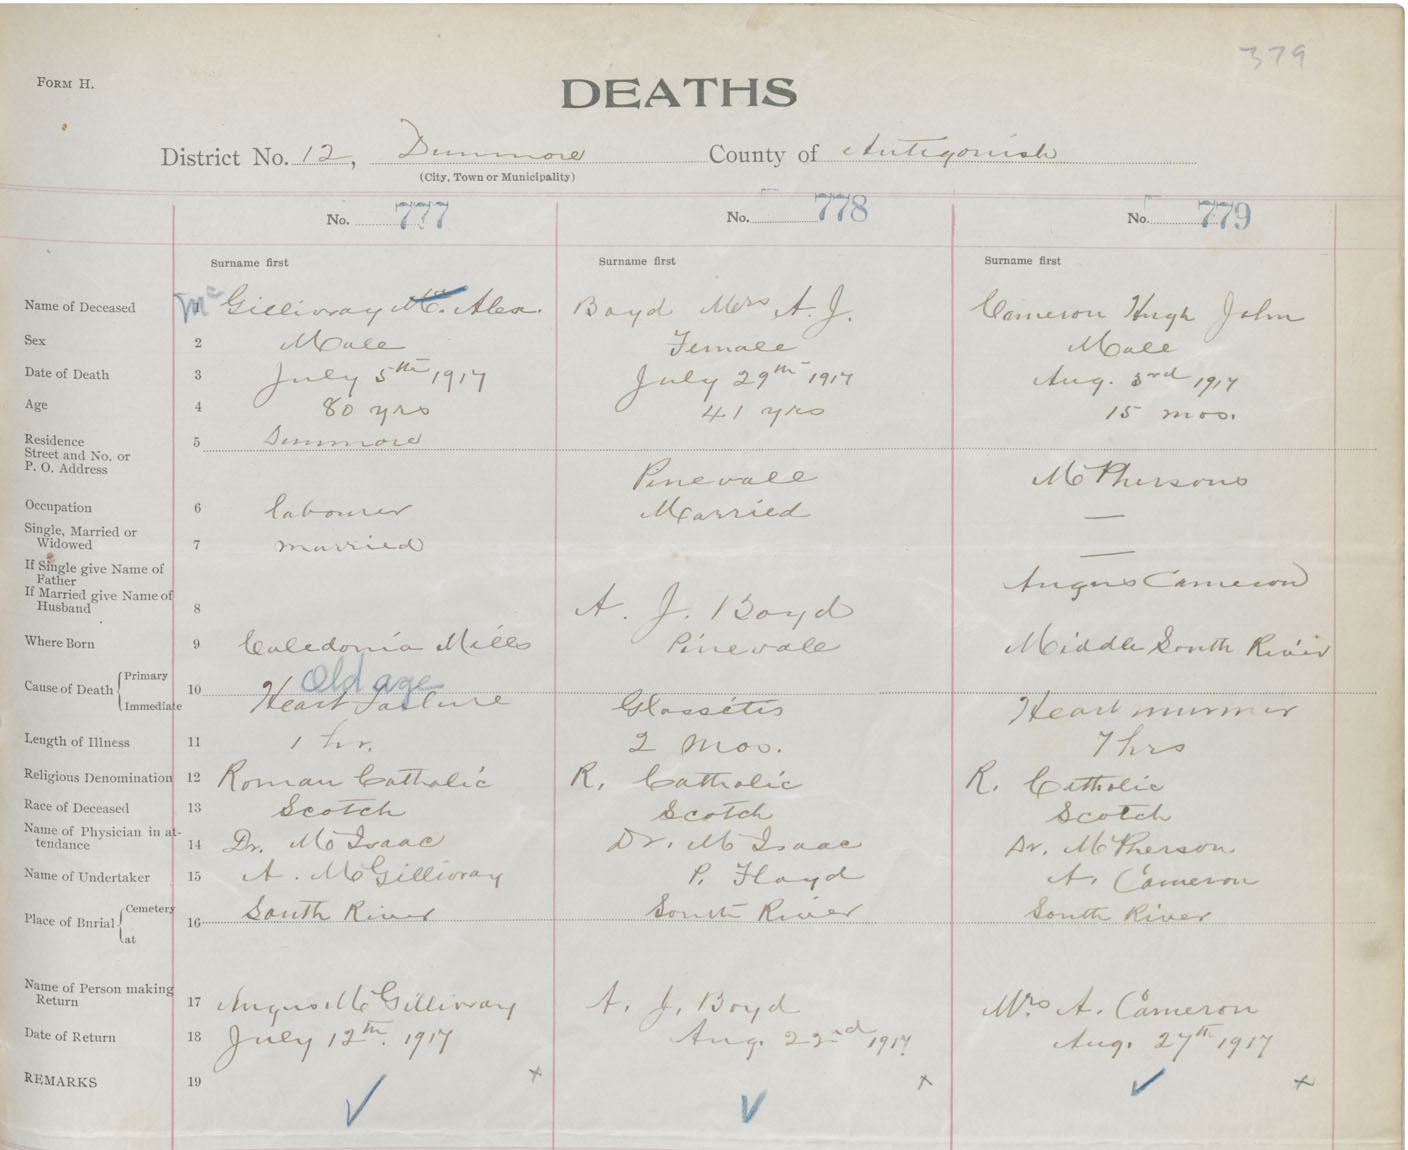 379
FORM H.
DEATHS
District No. 12, Dunmore County of Antigonish
(City, Town or Municipality)
No. 777 No. 778 No. 779
Surname first Surname first Surname first
Name of Deceased 1 Mc Gillivray Mc. Alex. Boyd Mrs A. J. Cameron Hugh John
Sex 2 Male Female Male
Date of Death 3 July 5th 1917 July 29th 1917 Aug. 3rd 1917
Age 4 80 yrs 41 yrs 15 mos.
Residence 5 Dunmore
Street and No. or
P. O. Address Pinevale McPhersons
Occupation 6 labourer Married —
Single, Married or
Widowed 7 married —
If Single give Name of
Father Angus Cameron
If Married give Name of
Husband 8 A. J. Boyd
Where Born 9 Caledonia Mills Pinevale Middle South River
Cause of Death { Primary 10 Old age
Immediate Heart failure Glossitis Heart murmur
Length of Illness 11 1 hr. 2 mos. 7 hrs
Religious Denomination 12 Roman Catholic R. Catholic R. Catholic
Race of Deceased 13 Scotch Scotch Scotch
Name of Physician in at-
tendance 14 Dr. McIsaac Dr. McIsaac Dr. McPherson
Name of Undertaker 15 A. McGillivray P. Floyd A. Cameron
Place of Bnrial { Cemetery 16 South River South River South River
at
Name of Person making
Return 17 Angus McGillivray A. J. Boyd Mrs A. Cameron
Date of Return 18 July 12th. 1917 Aug. 22nd 1917 Aug. 27th 1917
REMARKS 19 ✓ x ✓ x ✓ x